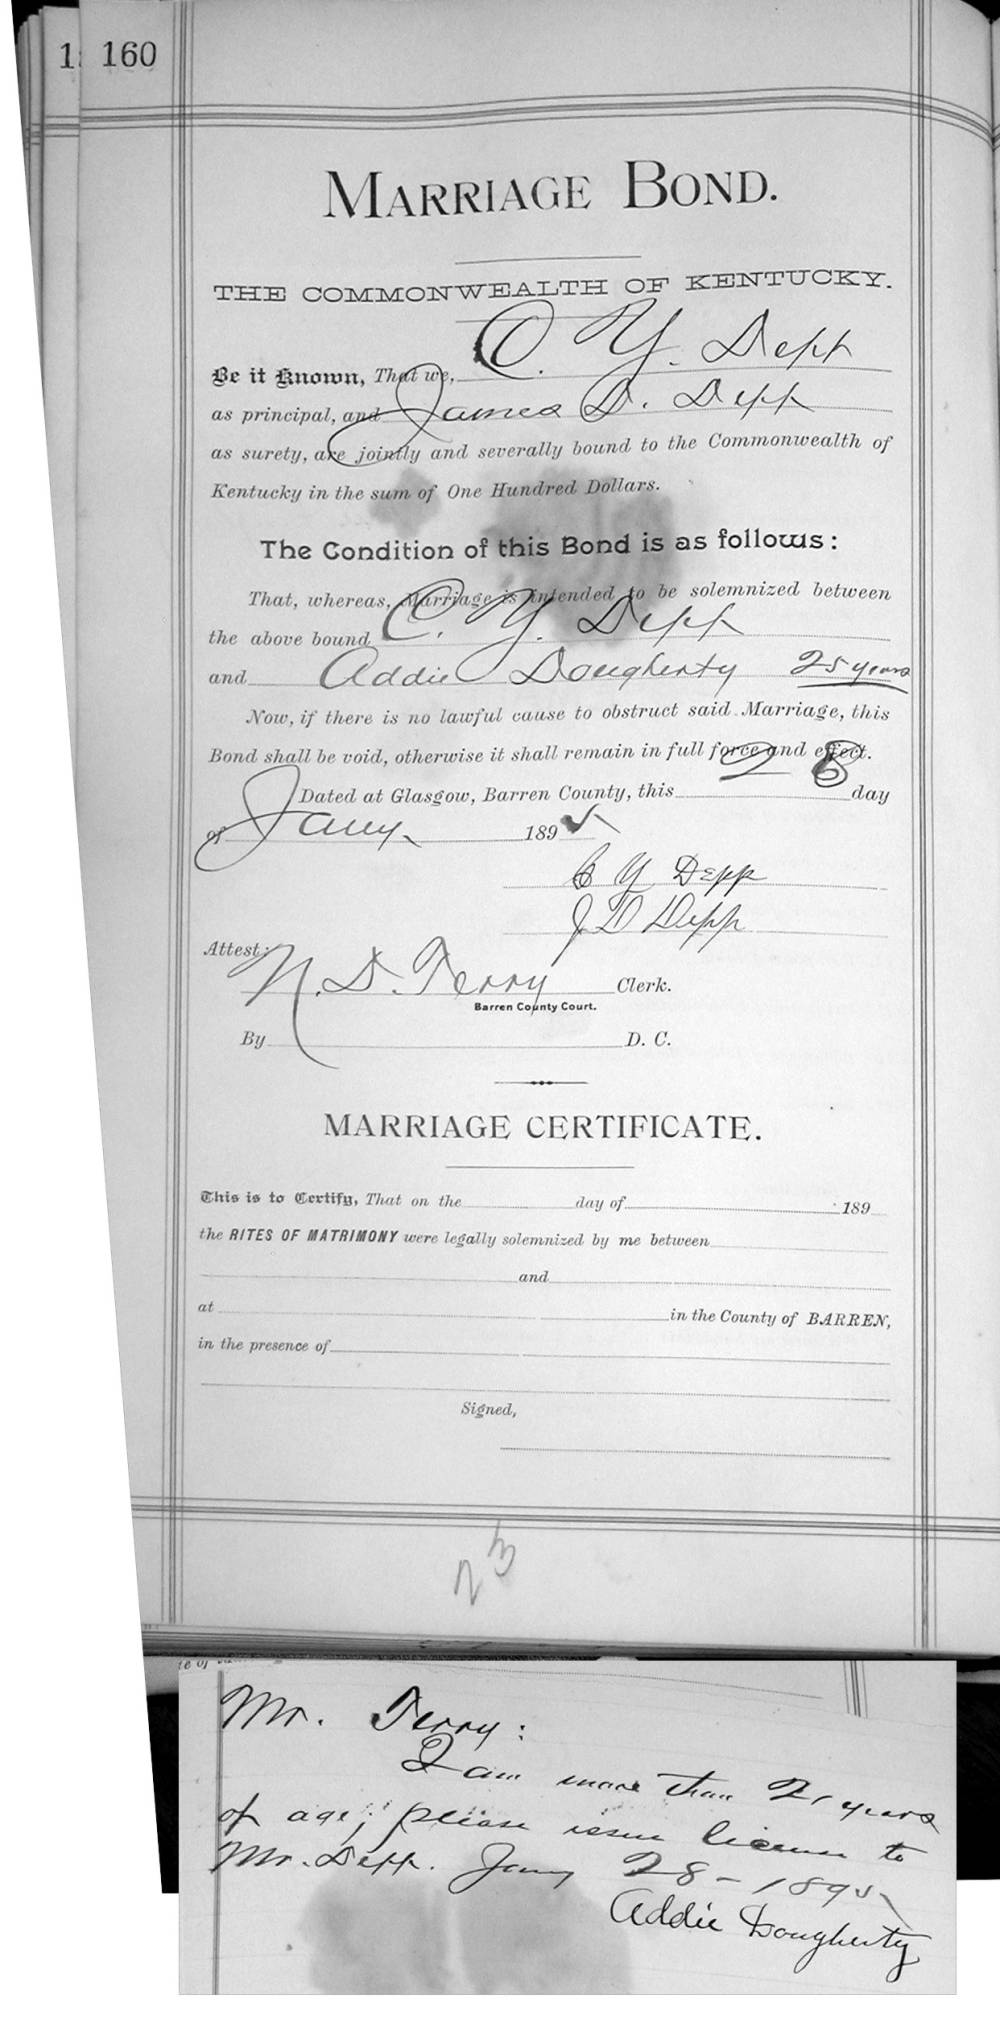 160
MARRIAGE BOND.
THE COMMONWEALTH OF KENTUCKY.
Be it Known, That we, C. Y. Depp
as principal, and James D. Depp
as surety, are jointly and severally bound to the Commonwealth of
Kentucky in the sum of One Hundred Dollars.
The Condition of this Bond is as follows:
That, whereas, Marriage is intended to be solemnized between
the above bound C. Y. Depp
and Addie Dougherty 25 years
Now, if there is no lawful cause to obstruct said Marriage, this
Bond shall be void, otherwise it shall remain in full force and effect.
Dated at Glasgow, Barren County, this 28 day
of Jany. 1895
C Y Depp
J D Depp
Attest:
N. D. Terry Clerk.
Barren County Court.
By D. C.
MARRIAGE CERTIFICATE.
This is to Certify, That on the day of 189
the RITES OF MATRIMONY were legally solemnized by me between
and
at in the County of BARREN,
in the presence of
Signed,
23
Mr. Terry:
I am more than 21 years
of age; please issue license to
Mr. Depp. Jany 28-1895
Addie Dougherty